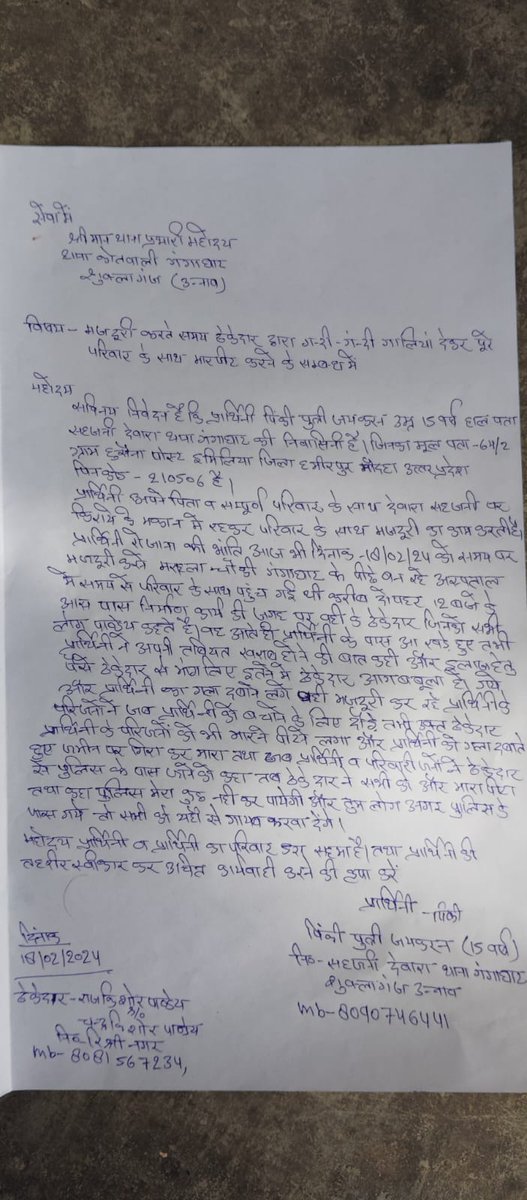 सेवा में
श्रीमान थाना प्रभारी महोदय
थाना कोतवाली गंगाघाट
शुक्लागंज (उन्नाव)
विषय - मजदूरी करते समय ठेकेदार द्वारा गन्दी-गंन्दी गालियां देकर पूरे
परिवार के साथ मारपीट करने के सम्बन्ध में
महोदय
सविनय निवेदन है कि प्रार्थिनी पिंकी पुत्री जयकरन उम्र 15 वर्ष हाल पता
सहजनी देवारा थाना गंगाघाट की निवासिनी है। जिनका मूल पता - 64/2
ग्राम पोस्ट इमिलिया जिला हमीरपुर मौदहा उत्तर प्रदेश
पिनकोड - 210506 है।
प्रार्थिनी अपने पिता व सम्पूर्ण परिवार के साथ देवारा सहजनी पर
किराये के मकान में रहकर परिवार के साथ मजदूरी का काम करती है।
प्रार्थिनी रोजाना की भांति आज भी दिनांक - 18/02/24 को समय पर
मजदूरी करने मरहला चौकी गंगाघाट के पीछे बन रहे अस्पताल
में समय से परिवार के साथ पहुंच गई थी करीब दोपहर 12 बजे के
आस पास निर्माण कार्य की जगह पर वही के ठेकेदार जिनको सभी
लोग पाण्डेय कहते है) वह आते ही प्रार्थिनी के पास आ खडे हुए तभी
प्रार्थिनी ने अपनी तबियत खराब होने की बात कही और इलाज हेतु
पैसे ठेकेदार से मांग लिए इतने में ठेकेदार आगबबूला हो गये
और प्रार्थिनी का गला दबाने लगे वही मजदूरी कर रहे प्रार्थिनी के
परिजनों ने जब प्रार्थिनी को बचाने के लिए दौडे तभी उक्त ठेकेदार
प्रार्थिनी के परिजनों को भी मारने पीटने लगा और प्रार्थिनी को गला दबाते
हुए जमीन पर गिरा कर मारा तथा जब प्रार्थिनी व परिवारी जनों ने ठेकेदार
से पुलिस के पास जाने को कहा तब ठेकेदार ने सभी को और मारा पीटा
तथा कहा पुलिस मेरा कुछ नही कर पायेगी और तुम लोग अगर पुलिस के
पास गये तो सभी को यही से गायब करवा देंगे।
महोदय प्रार्थिनी व प्रार्थिनी का परिवार डरा सहमा है। तथा प्रार्थिनी की
तहरीर स्वीकार कर उचित कार्यवाही करने की कृपा करें
प्रार्थिनी - पिंकी
पिंकी पुत्री जयकरन (15 वर्ष)
नि०- सहजनी देवारा थाना गंगाघाट
शुक्लागंज उन्नाव
mb- 8090746441
दिनांक
18/02/2024
ठेकेदार - राजकिशोर पाण्डेय
S/o
चन्द्रकिशोर पाण्डेय
नगर
mb- 8081567234,